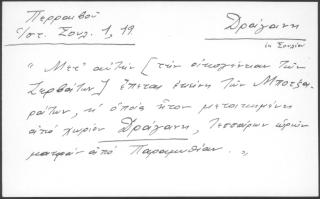 Περραιβοῦ
Ἱστ. Σουλ. 1, 19.
Δράγανη
ἐν Σουλίῳ
"Μετ' αὐτὴν [τὴν οἰκογένειαν τῶν
Ζερβαίων] ἔπεται ἐκείνη τῶν Μποτζα-
ραίων, ἡ ὁποία ἦτον μετοικημένη
ἀπὸ χωρίον Δράγανη, τεσσάρων ὡρῶν
μακρὰν ἀπὸ Παραμυθίαν."